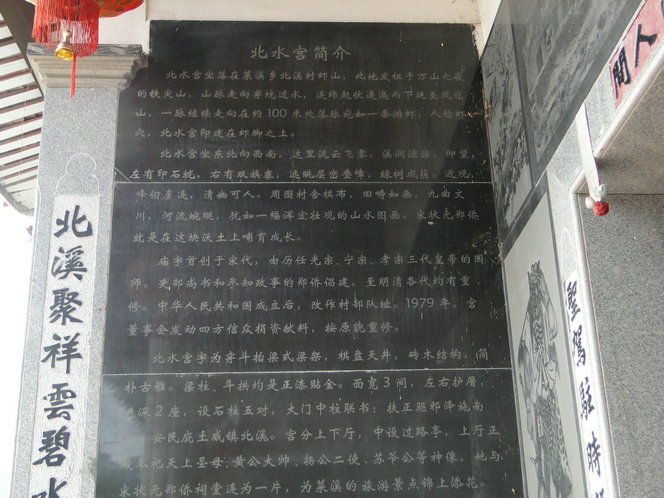 北水宫简介
北水宫坐落在菜溪乡北溪村虾山，此地发祖于万山之泰
的铁尖山，山脉走向穿坑过水，连绵起伏逶迤而下延至凤冠
山，一脉继续走向在约100米处落脉宛如一条游虾，人称虾
穴，北水宫即建在虾脚之上。
北水宫坐东北向西南，这里流云飞雾，溪涧淙淙。仰望，
左有印石坨，右有双旗寨，远眺层峦叠嶂，绿树成荫。近观，
峰甸崖连，清幽可人。周围村舍棋布，田畴如画，九曲文
川，河流蜿蜒，犹如一幅浑宏壮观的山水图画。宋状元郑侨
就是在这块沃土上哺育成长。
庙宇首创于宋代，由历任光宗、宁宗、孝宗三代皇帝的国
师，吏部尚书和参知政事的郑侨倡建，至明清各代均有重
修。中华人民共和国成立后，改作村部队址。1979年，宫
董事会发动四方信众捐资献料，按原貌重修。
北水宫宇为穿斗抬梁式梁架，棋盘天井，砖木结构，简
朴古雅。梁柱、斗拱均是正漆贴金。面宽3间，左右护厝，
进深2座，设石柱五对，大门中柱联书：扶正驱邪泽施南
安民庇土威镇北溪。宫分上下厅，中设过路亭，上厅正
奉祀天上圣母、黄公大帅、杨公二使、苏爷公等神像，她与
宋状元郑侨祠堂连为一片，为菜溪的旅游景点锦上添花。
北溪聚祥雲碧水
聖駕駐時
人間